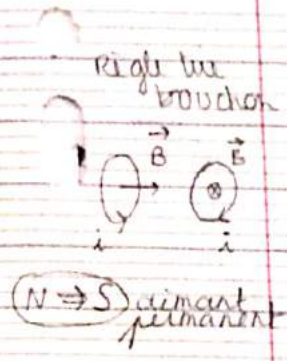 Règle du
bouchon
B B
i i
N ⇒ S aimant
permanent